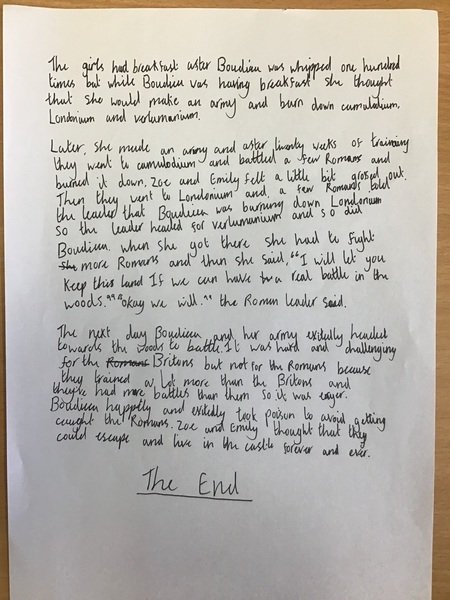 The girls had breakfast aster Boudicca was whipped one hundred
times but while Boudicca was having breakfast she thought
that she would make an army and burn down camulodium,
Londonium and verlumanium.
Later, she made an army and aster twenty weeks of training
they went to camulodium and battled a few Romans and
burned it down. Zoe and Emily felt a little bit grossed out.
Then they went to Londonium and a few Romans told
the leader that Boudicca was burning down Londonium
so the leader headed for verlumanium and so did
Boudicca. when she got there she had to fight
she more Romans and then she said, "I will let you
keep this land If we can have a real battle in the
woods." "okay we will." the Roman leader said.
The next day Boudicca and her army exitedly headed
towards the woods to battle. It was hard and challenging
for the Romans Britons but not for the Romans because
they trained a lot more than the Britons and
they've had more battles than them so it was
Boudicca happily and exitedly took poison to avoid getting
caught the Romans. Zoe and Emily thought that they
could escape and live in the castle forever and ever.
The End